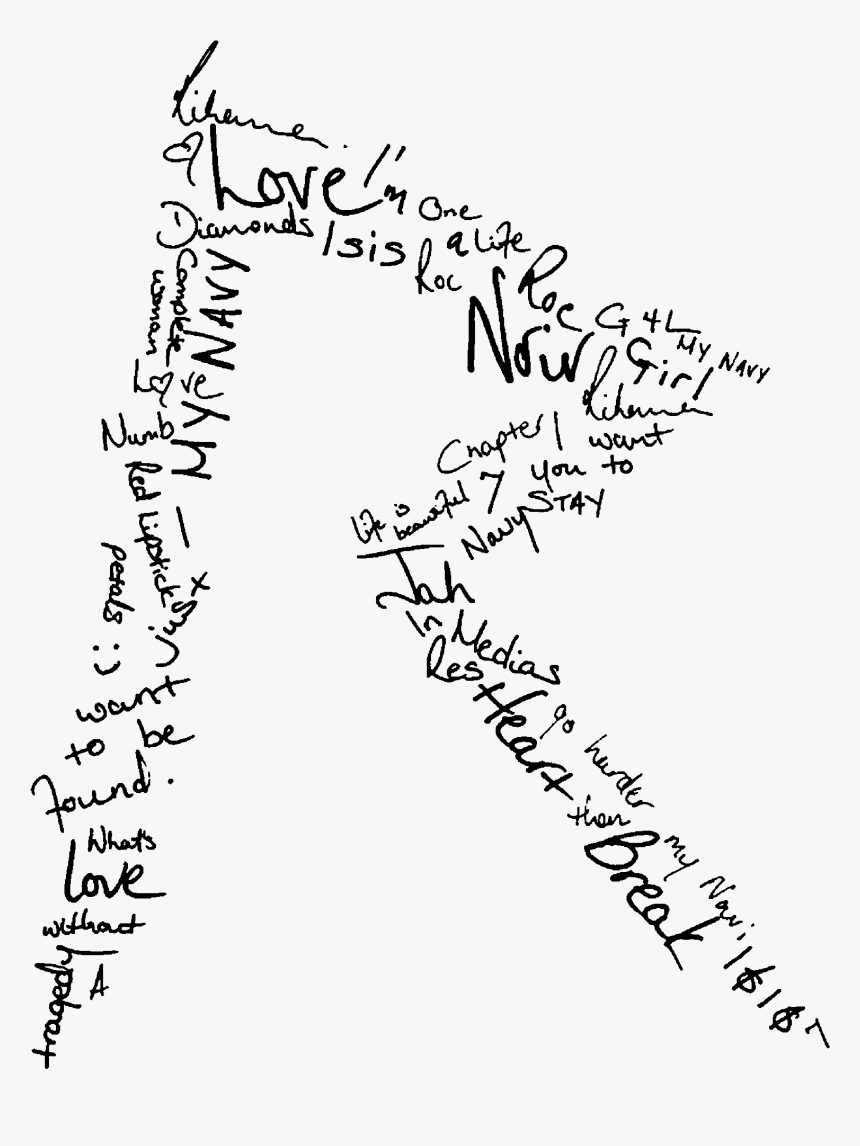 Rihanna
Love
I'm One
Diamonds
Isis
a Life
Roc
Roc
Noir
G4L
MY NAVY
Girl
Rihanna
Complete woman
MY NAVY
Love
Numb
Red Lipstick
petals :)
I want
to be
found.
What's
Love
without
A
tragedy
Chapter
7
I want
you to
STAY
Life is beautiful
Navy
Jah
In Medias
Res
Heart
go harder
than
Break
my Navi,
1$1$7